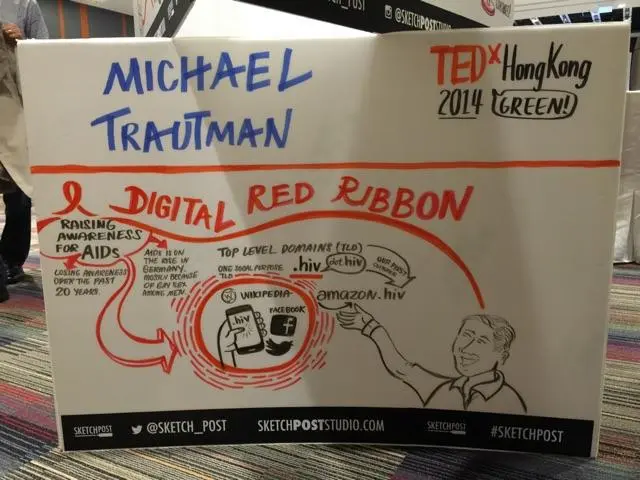 SKETCH_POST
@SKETCHPOSTSTUDIO
MICHAEL
TRAUTMAN
TEDx HongKong
2014 GREEN!
DIGITAL RED RIBBON
RAISING
AWARENESS
FOR AIDs
LOSING AWARENESS
OVER THE PAST
20 YEARS.
AIDS IS ON
THE RISE IN
GERMANY,
MOSTLY BECAUSE
OF GAY SEX
AMONG MEN.
TOP LEVEL DOMAINS (TLD)
ONE SOCIAL PURPOSE
TLD
.hiv
dot.hiv
OUR FIRST
amazon.hiv
WIKIPEDIA
FACEBOOK
.hiv
SKETCHPOST
@SKETCH_POST
SKETCHPOSTSTUDIO.COM
SKETCHPOST
#SKETCHPOST